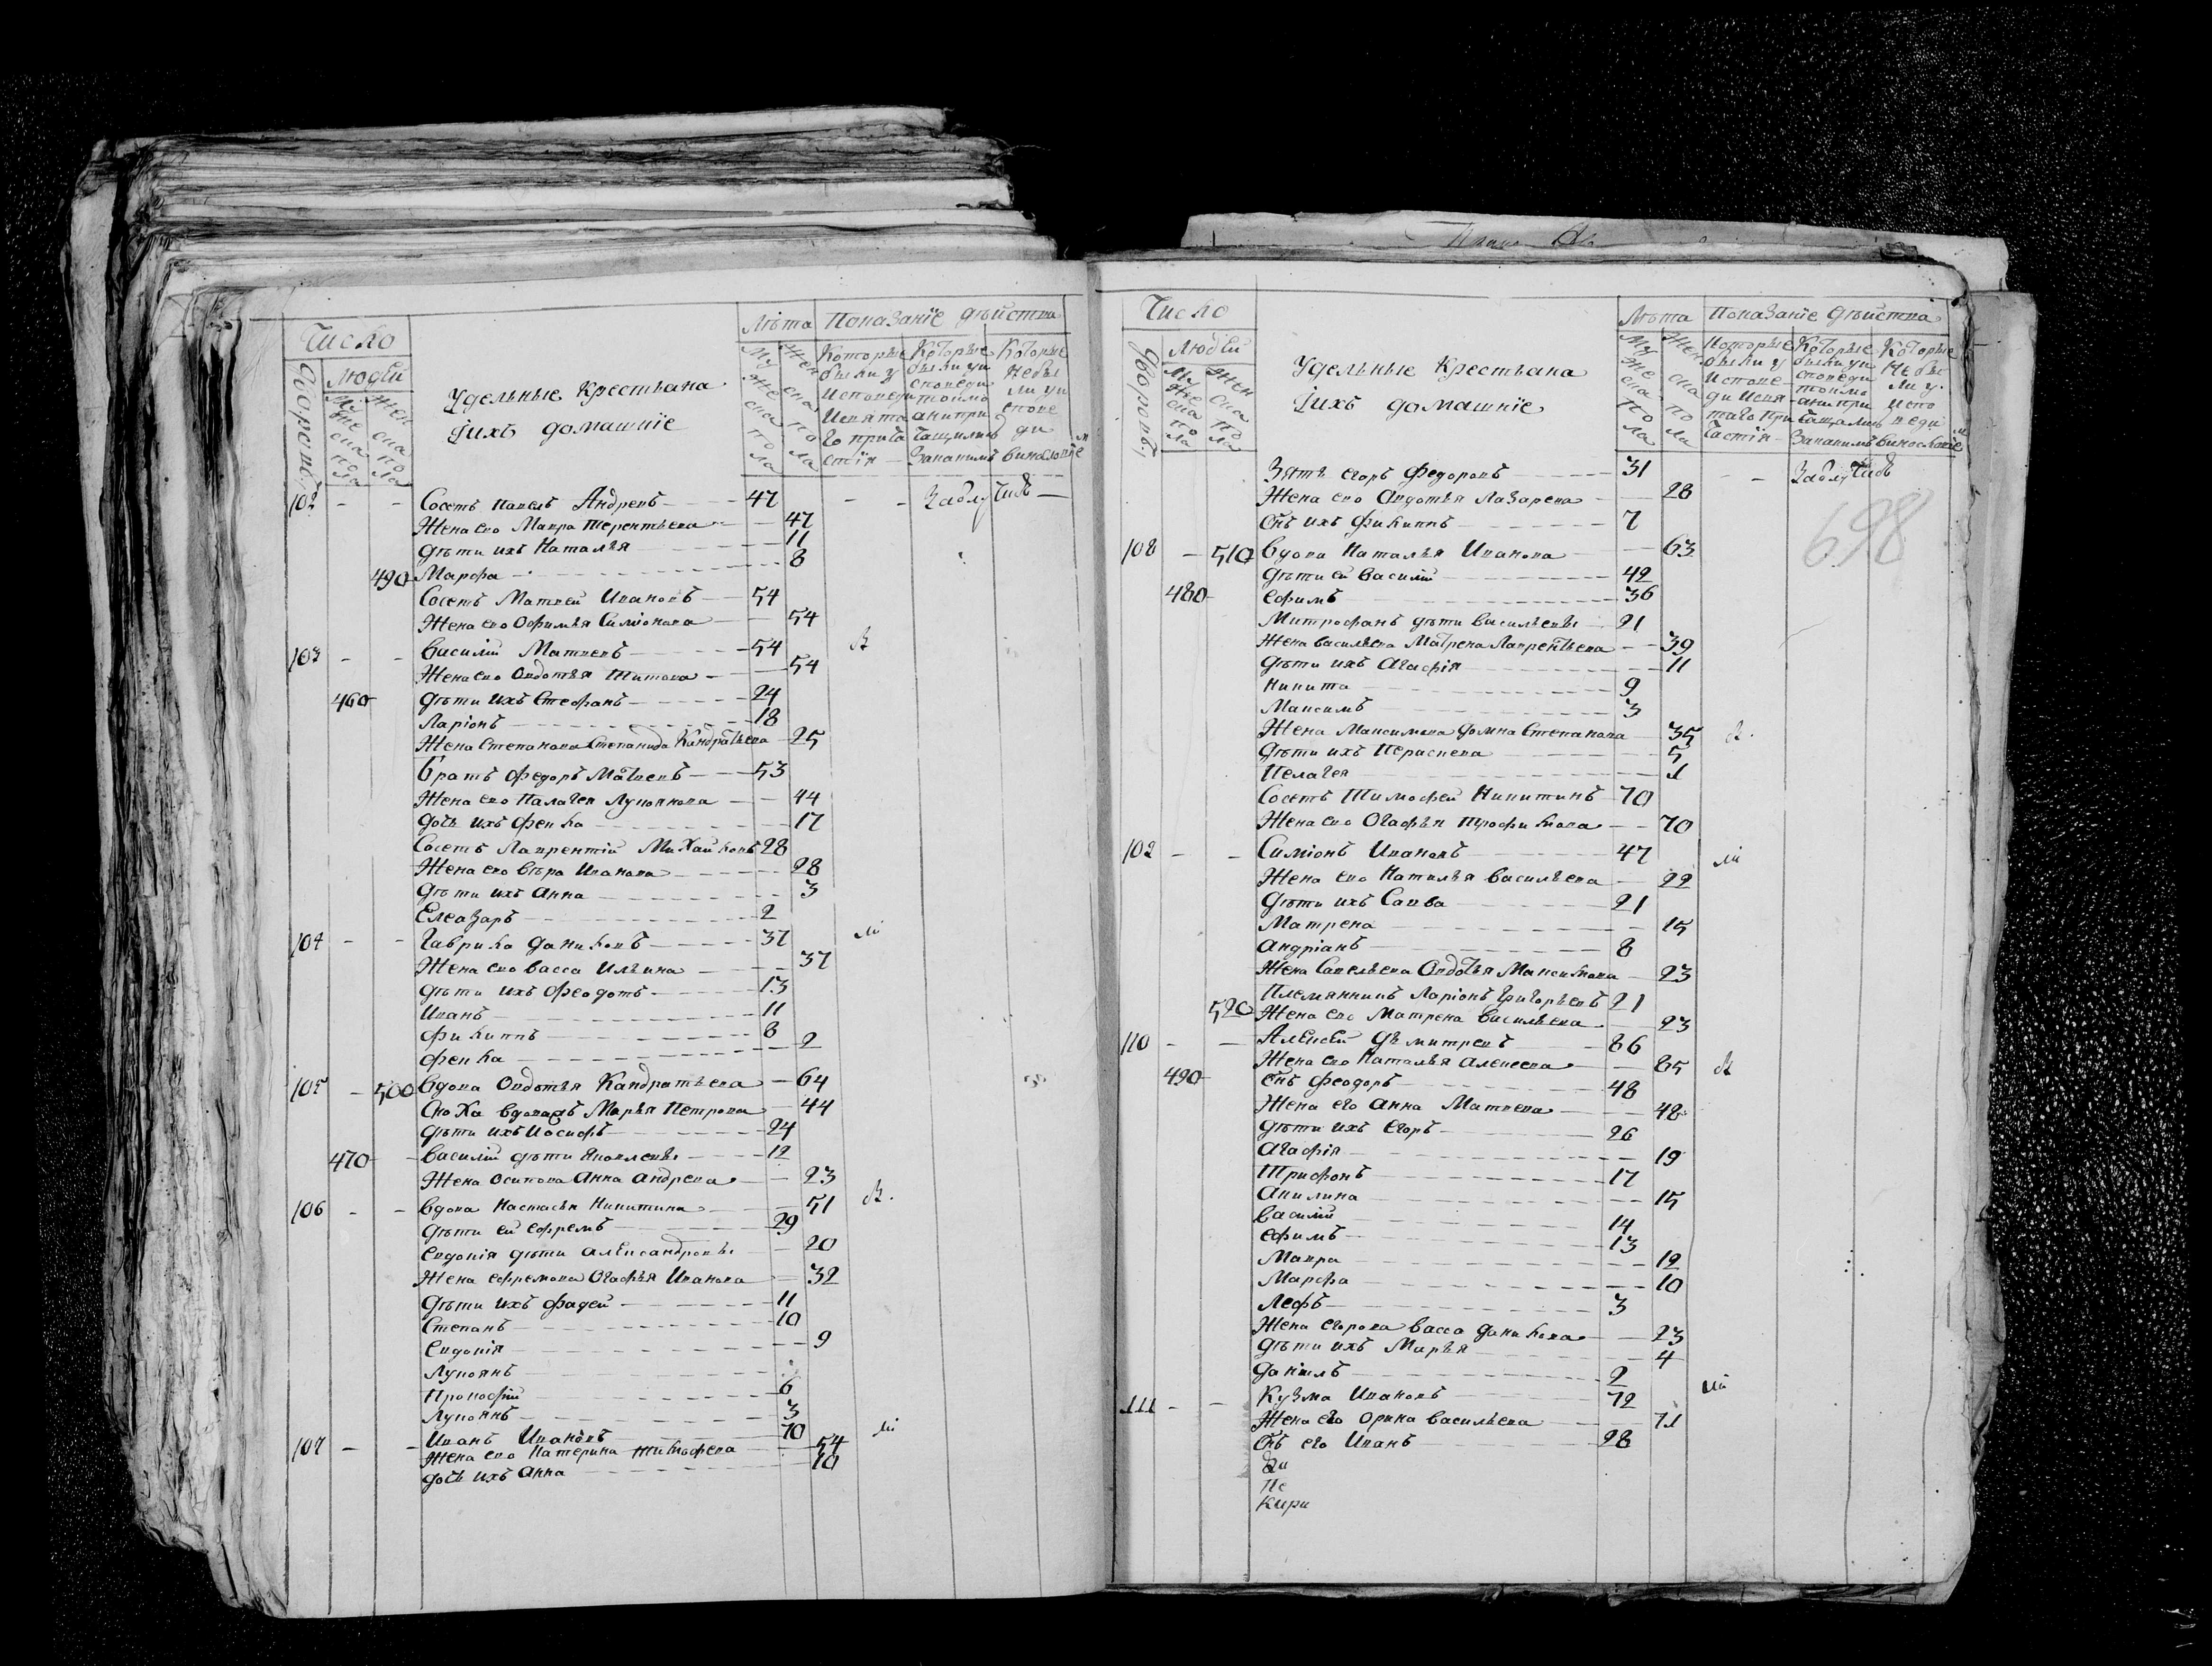 Число
Дворовъ
Людей
Мужеска пола
Женска пола
Удельные Крестьяна
Іихъ домашніе
Лѣта
Мужеска пола
Женска пола
Показаніе дѣйства
Которые были у исповеди и святаго причастія
Которые были у исповеди токмо а не причащались
Которые не были у исповеди
102 - - Сосетъ Павелъ Андревъ 47 - - Заблутивъ
Жена ево Мавра Терентьева 47
дѣти ихъ Наталья 11
490 Марфа 8
Сосетъ Матвей Ивановъ 54
Жена ево Офимья Симіонова 54
103 - - Василій Матвевъ 54
Жена ево Овдотья Титова 54
460 дѣти ихъ Стефанъ 24
Ларіонъ 18
Жена Степанова Степанида Кандратьева 25
Братъ Федоръ Матвевъ 53
Жена ево Палагея Лупоянова 44
дочь ихъ Фекла 17
Сосетъ Лаврентій Михайловъ 28
Жена ево Вѣра Иванова 28
дѣти ихъ Анна 3
Елеазаръ 2
104 - - Гаврила Даниловъ 37
Жена ево Васса Ильина 37
дѣти ихъ Феодотъ 13
Иванъ 11
Филиппъ 8
Фекла 2
105 - 500 Вдова Овдотья Кандратьева 64
Сноха вдовая Марья Петрова 44
дѣти ихъ Иосифъ 24
470 Василій дѣти Яковлевы 12
Жена Осипова Анна Андрева 23
106 - - Вдова Настасья Никитина 51
дѣти ей Ефремъ 29
Евдокія дѣти Александровы 20
Жена Ефремова Огафья Иванова 32
дѣти ихъ Фадей 11
Степанъ 10
Евдокія 9
Лупоянъ
Прокофій 6
Лупоянъ 3
107 - - Иванъ Ивановъ 70
Жена ево Катерина Тимофева 54
дочь ихъ Анна 10
Число
Дворовъ
Людей
Мужеска пола
Женска пола
Удельные Крестьяна
Іихъ домашніе
Лѣта
Мужеска пола
Женска пола
Показаніе дѣйства
Которые были у исповеди и святаго причастія
Которые были у исповеди токмо а не причащались
Которые не были у исповеди
Зять Егоръ Федоровъ 31 - - Заблутивъ
Жена ево Овдотья Лазарева 28
698
Сынъ ихъ Филиппъ 7
108 - 510 Вдова Наталья Иванова 63
дѣти ей Василій 42
480 Ефимъ 36
Митрофанъ дѣти Васильевы 21
Жена Васильева Матрена Лаврентьева 39
дѣти ихъ Агафія 11
Никита 9
Максимъ 3
Жена Максимова Домна Степанова 35
дѣти ихъ Параскева 5
Пелагея 1
Сосетъ Тимофей Никитинъ 70
Жена ево Огафья Трофимова 70
102 - - Симіонъ Ивановъ 47
Жена ево Наталья Васильева 22
дѣти ихъ Савва 21
Матрена 15
Андріанъ 8
Жена Савельева Овдотья Максимова 23
Племянникъ Ларіонъ Григорьевъ 21
520 Жена ево Матрена Васильева 23
110 - - Алексей Дьмитревъ 86
Жена ево Наталья Алексеева 85
490 Сынъ Феодоръ 48
Жена его Анна Матвева 48
дѣти ихъ Егоръ 26
Агафія 19
Трифонъ 17
Акилина 15
Василій 14
Ефимъ 13
Мавра 12
Марфа 10
Лефъ 3
Жена Егорова Васса Данилова 23
дѣти ихъ Марья 4
Данилъ 2
111 - - Кузма Ивановъ 72
Жена его Орина Васильева 71
Сынъ его Иванъ 28
Кири